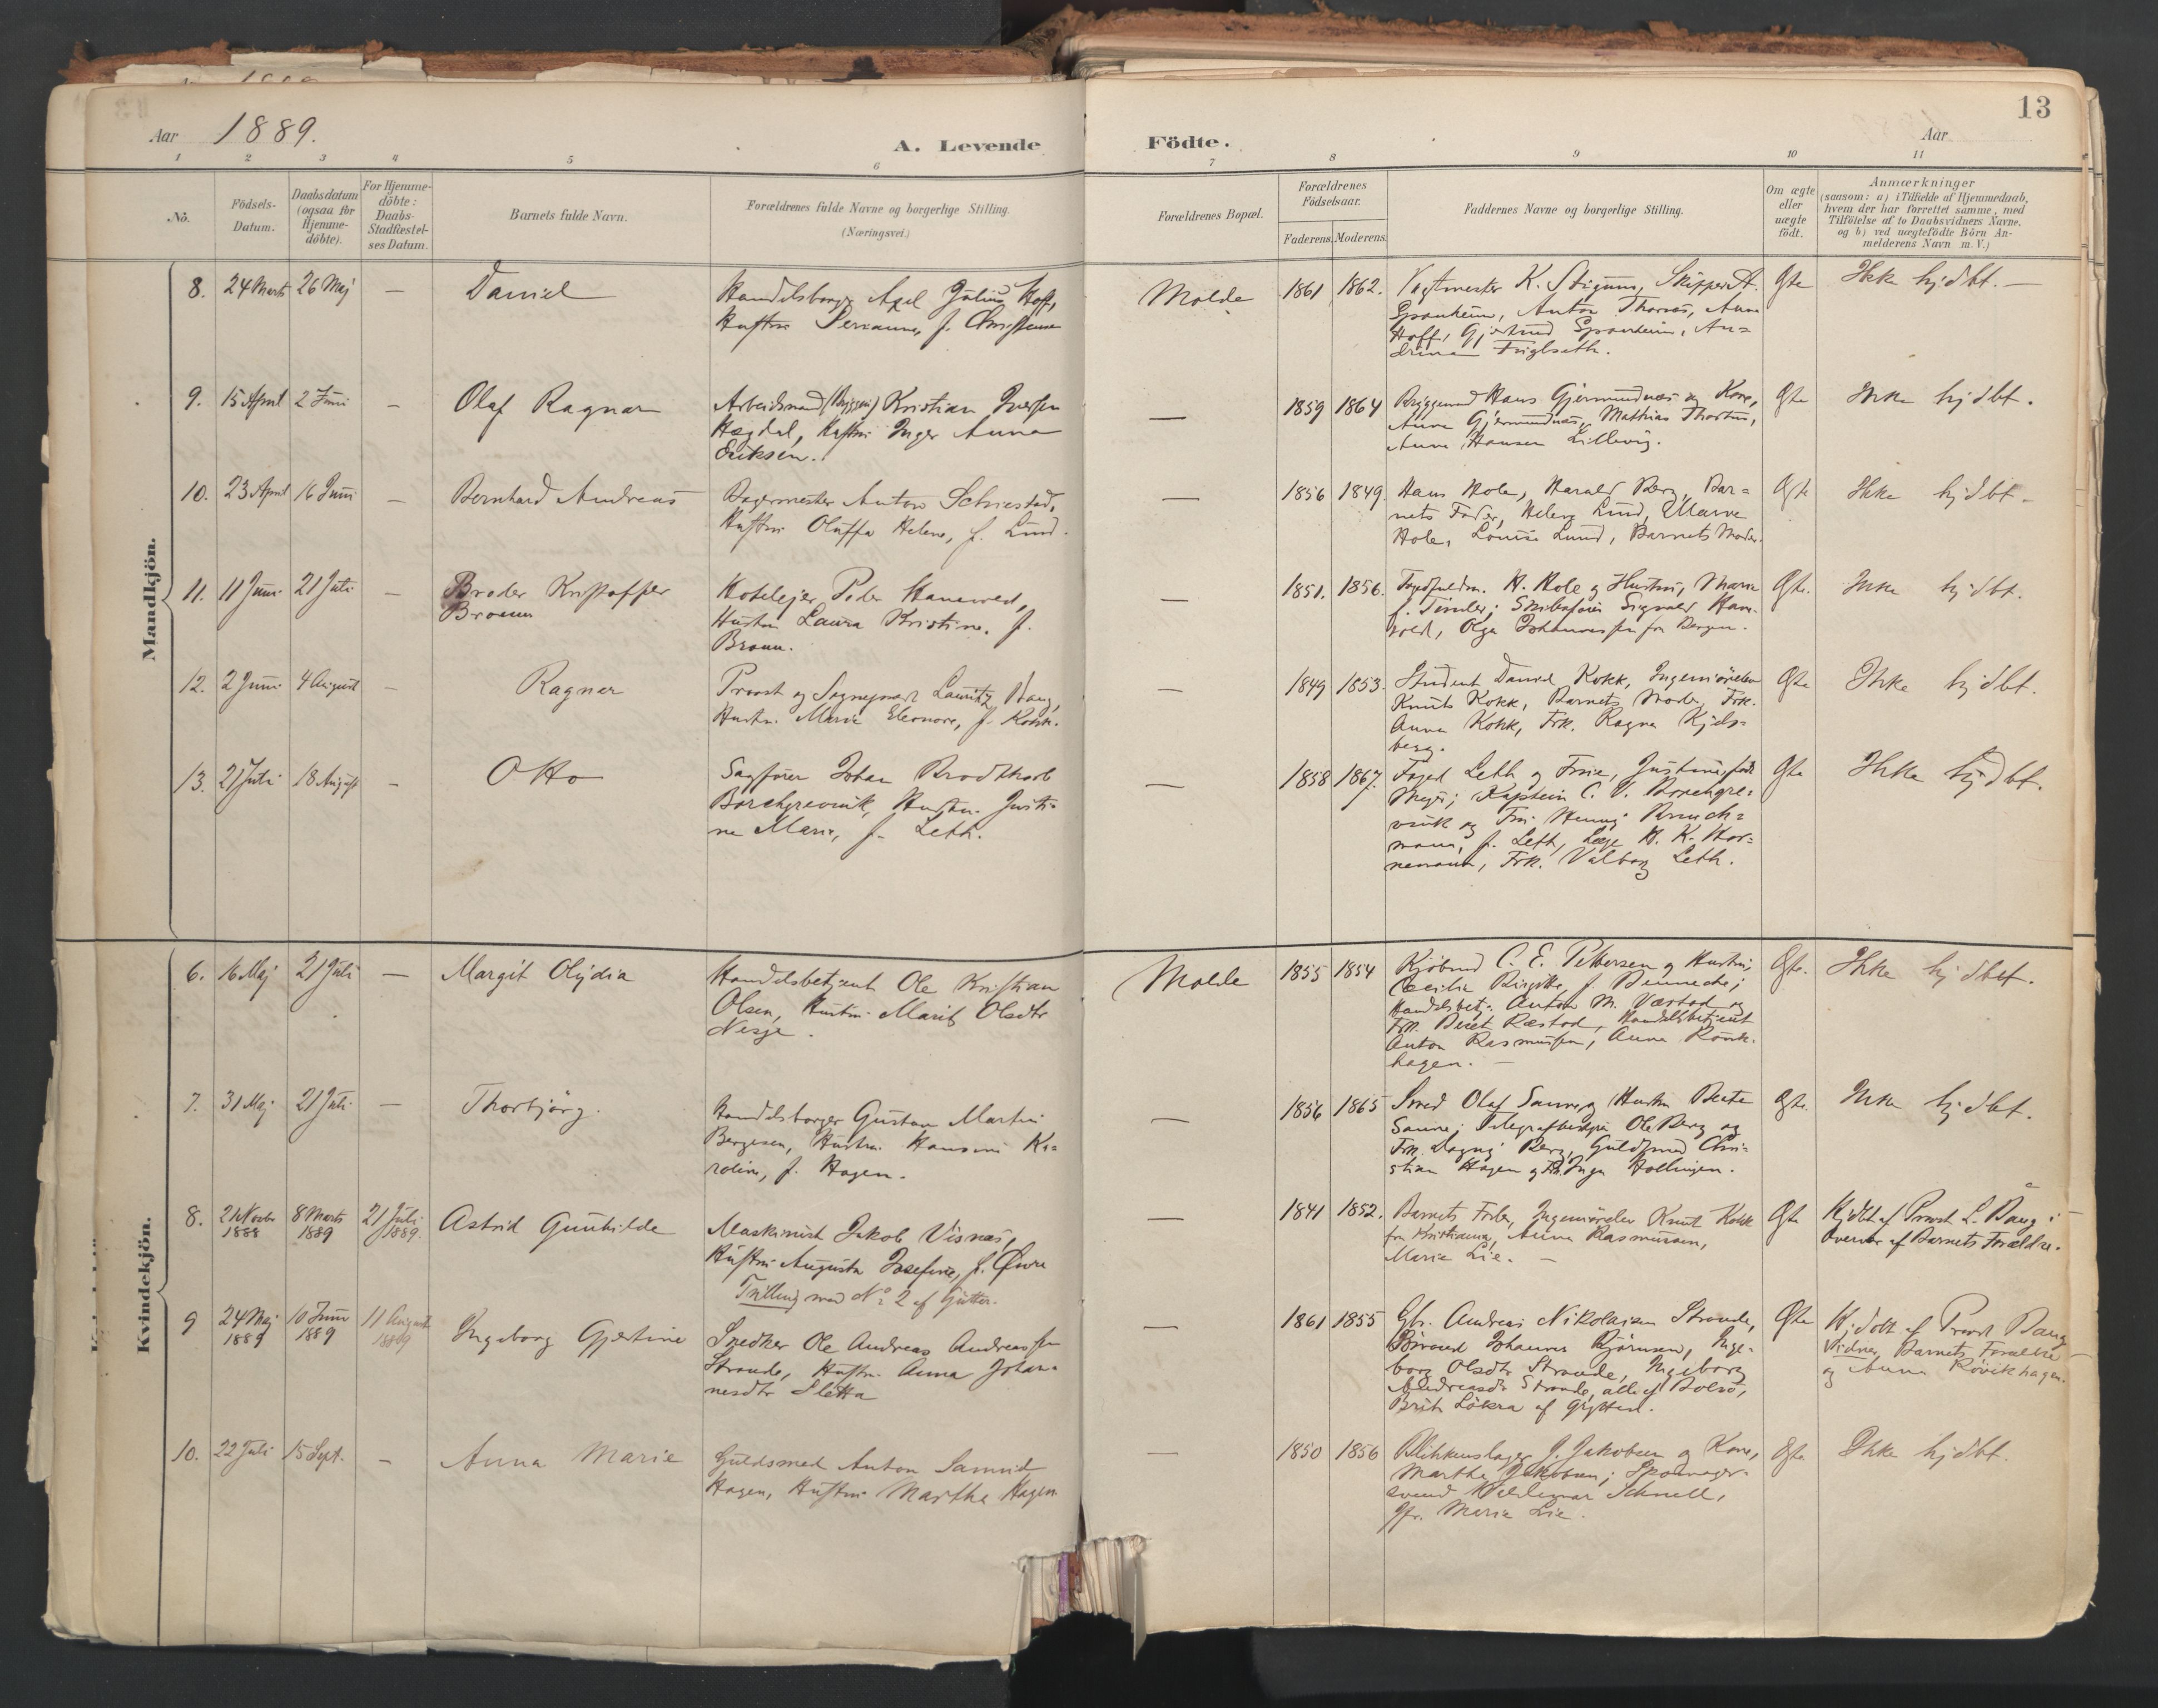 13
Aar 1889.
A. Levende Födte.
Aar
1 2 3 4 5 6 7 8 9 10 11
No.
Födsels-Datum.
Daabsdatum (ogsaa for Hjemme-döbte).
For Hjemme-döbte: Daabs-Stadfæstel-ses Datum.
Barnets fulde Navn.
Forældrenes fulde Navne og borgerlige Stilling.
(Næringsvei.)
Forældrenes Bopæl.
Forældrenes Födselsaar.
Faderens. Moderens.
Faddernes Navne og borgerlige Stilling.
Om ægte eller uægte født.
Anmærkninger
(saasom: a) i Tilfælde af Hjemmedaab,
hvem der har forrettet samme, med
Tilföielse af to Daabsvidners Navne,
og b) ved uægtefödte Börn An-
melderens Navn m. V.)
Mandkjön.
8. 24 Marts 26 Maj — Daniel
Handelsborger Axel Julius Hoff,
Hustru Perianne, f. Christensen
Molde 1861 1862.
K. Stigum, Skipper A.
Spanheim, Anton Thornæs, Anna
Hoff, Gjertrud Spanheim, An-
drina
Ægte Ikke hjdbt. —
9. 15 April 2 Juni — Olaf Ragnar
Arbeidsmand (Bryggeri) Kristian Iversen
Hægdal, Hustru Inger Anna
Eriksen.
— 1859 1864
Bryggemand Hans Gjermundnæs og Kone,
Anna Gjermundnæs, Mathias
Anna Hansen Lillevig.
Ægte Ikke hjdbt.
10. 23 April 16 Juni — Bernhard Andreas
Bagermester Anton Schiestad,
Hustru Oluffa Helene, f. Lund.
— 1856 1849
Hans Hole, Harald Berg, Bar-
nets Fader, Helene Lund, Marie
Hole, Louise Lund, Barnets Moder.
Ægte Ikke hjdbt.
11. 11 Juni 21 Juli — Broder Kristoffer
Broun
Hotelejer Peder Hanevold,
Hustru Laura Kristine, f.
Broun.
— 1851. 1856.
H. Hole og Hustru, Marie
f. Skibsfører Sigvald Hane-
vold, Olga Johannessen fra Bergen.
Ægte. Ikke hjdbt.
12. 2 Juni 4 August — Ragnar
Provst og Sognepræst Lauritz Haug,
Hustru Marie Eleonore, f. Kokk.
— 1849 1853.
Student Daniel Kokk, Ingeniørelev
Knut Kokk, Barnets Moder, Frk.
Anna Kokk, Frk. Ragna Kjels-
berg.
Ægte Ikke hjdbt.
13. 21 Juli 18 August — Otto
Sagfører Johan Brodtkorb
Borchgrevink, Hustru Justi-
ne Marie, f. Leth.
— 1858 1867.
Foged Leth og Frue, Justine, født
Meyer; Kaptein C. V. Borchgre-
vink og Fru Henny Bruch-
mann, f. Leth, Læge H. K. Hor-
nemann, Frk. Valborg Leth.
Ægte Ikke hjdbt.
Kvindekjön.
6. 16 Maj 21 Juli — Margit Olydia
Handelsbetjent Ole Kristian
Olsen, Hustru Marit Olsdtr
Nesje.
Molde 1855 1854
Kjøbmd C. E. Pettersen og Hustru,
Cecilie Birgitte, f. Denneche;
Handelsbetj. Anton M. Ræstad og
Frk. Beret Ræstad, Handelsbetjent
Anton Rasmussen, Anna Røvik-
hagen. —
Ægte. Ikke hjdbt.
7. 31 Maj 21 Juli — Thorbjørg.
Handelsborger Gustav Martin
Bergesen, Hustru Hansine Ka-
roline, f. Hagen.
— 1856 1865
Smed Olaf Sanne og Hustru Beate
Sanne; Telegrafbestyrer Ole Berg og
Frk. Dagny Berg, Guldsmed Chri-
stian Hagen og Frk. Inga Hollingen.
Ægte. Ikke hjdbt.
8. 21 Novbr 1888 8 Marts 1889 21 Juli 1889. Astrid Gunhilde
Maskinist Jakob Visnæs,
Hustru Augusta Josefine, f. Øvre
Tvilling med No 2 af Gutter.
— 1841 1852.
Barnets Fader, Ingeniørelev Knut Kokk
fra Kristiania, Anna Rasmussen,
Marie Lie. —
Ægte
Hjdbt af Provst L. Haug i
Overvær af Barnets Forældre.
9 24 Maj 1889 10 Juni 1889 11 August 1889 Ingeborg Gjertine
Snedker Ole Andreas Andreassen
Strande, Hustru Anna Johan-
nesdtr Sletta
— 1861 1855
Gbr. Andreas Nikolaisen Strande,
Johannes Bjørnsen, Inge-
borg Olsdtr Strande, Ingeborg
Andreasdtr Strande, alle af Bolsø,
Brit Løkra af Grytten.
Ægte
Hjdbt af Provst Haug
Vidner Barnets Forældre
og Anna Røvikhagen.
10. 22 Juli 15 Sept. — Anna Marie
Guldsmed Anton Samuel
Hagen, Hustru Martha Hagen
— 1850 1856
Blikkenslager J. Jakobsen og Kone,
Martha Jakobsen; Skomager-
svend Valdemar Schnell,
Gfr. Marie Lie.
Ægte Ikke hjdbt.